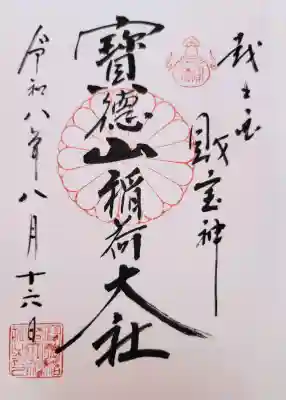 財宝神
寶德山稲荷大社
令和八年八月十六日